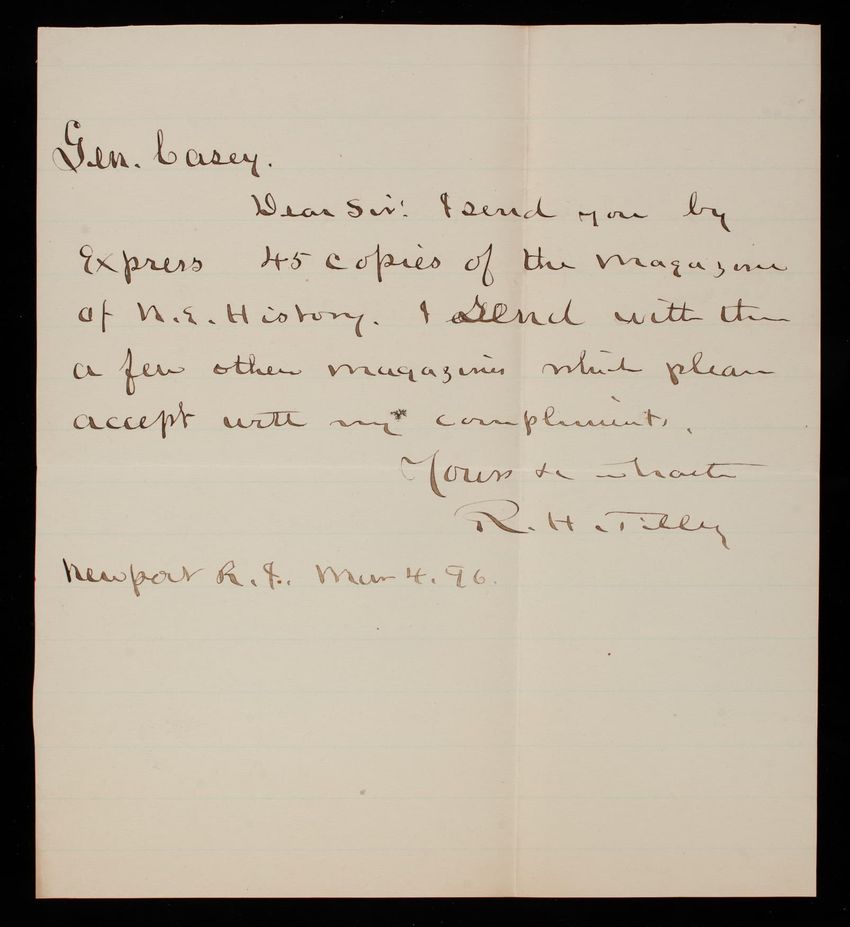 Gen. Casey.
Dear Sir: I send you by
Express 45 copies of the Magazine
of N.E. History. I send with them
a few other magazines which please
accept with my compliments.
Yours in haste
R. H. Tilley
Newport R.I. Mar 4. 96.